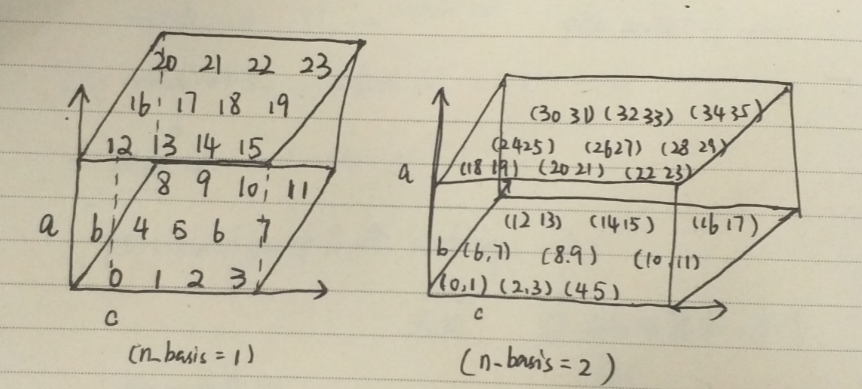 20 21 22 23
16 17 18 19
12 13 14 15
8 9 10 11
a b 4 5 6 7
0 1 2 3
c
(n_basis = 1)
(30 31) (32 33) (34 35)
(24 25) (26 27) (28 29)
a (18 19) (20 21) (22 23)
(12 13) (14 15) (16 17)
b (6,7) (8.9) (10,11)
(0,1) (2,3) (4 5)
c
(n-basis = 2)